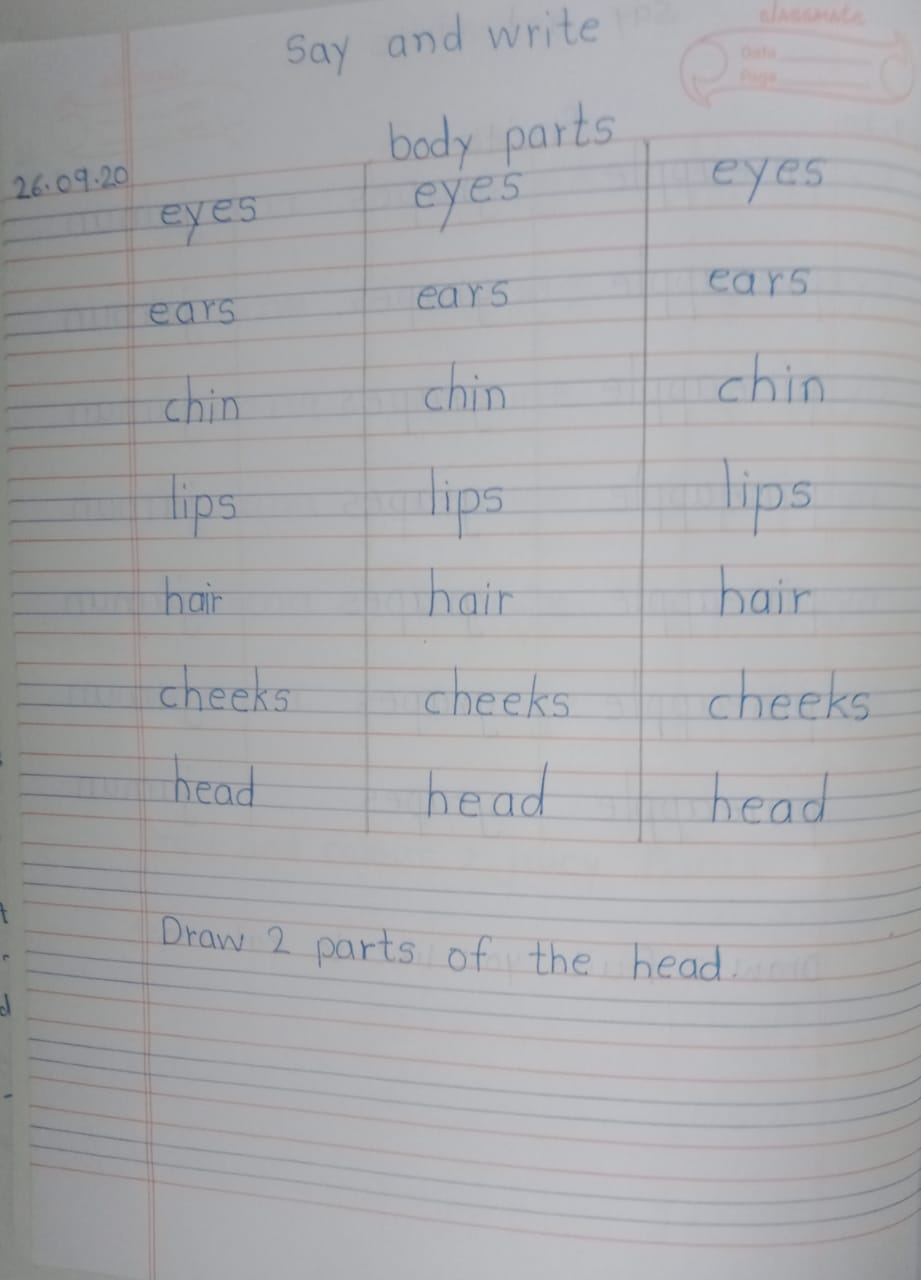 classmate
Date
Page
Say and write
body parts
26.09.20
eyes eyes eyes
ears ears ears
chin chin chin
lips lips lips
hair hair hair
cheeks cheeks cheeks
head head head
Draw 2 parts of the head.
t
d